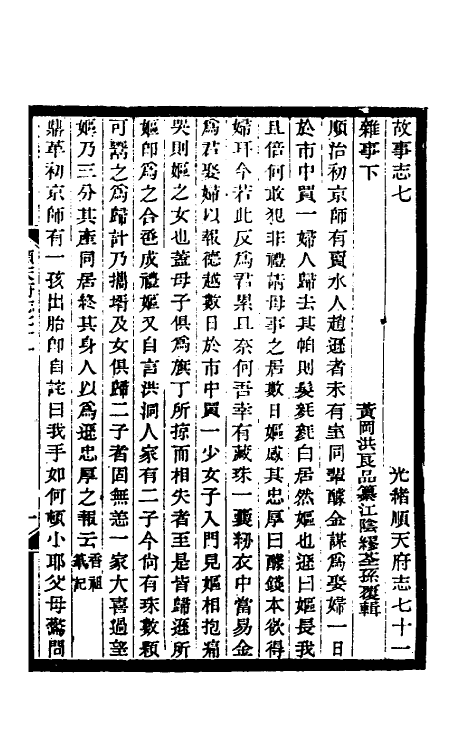 光緒順天府志七十一
故事志七
黃岡洪良品纂江陰繆荃孫覆輯
雜事下
順治初京師有賣水人趙遜者未有室同輩醵金謀爲娶婦一日
於市中買一婦人歸去其帕則髮毿毿白居然嫗也遜曰嫗長我
且倍何敢犯非禮請母事之居數日嫗感其忠厚曰醵錢本欲得
婦耳今若此反爲君累且奈何吾幸有藏珠一囊紉衣中當易金
爲君娶婦以報德越數日於市中買一少女子入門見嫗相抱痛
哭則嫗之女也蓋母子俱爲旗丁所掠而相失者至是皆歸遜所
嫗卽爲之合巹成禮嫗又自言洪洞人家有二子今尙有珠數顆
可鬻之爲歸計乃攜壻及女俱歸二子者固無恙一家大喜過望
嫗乃三分其產同居終其身人以爲遜忠厚之報云香祖筆記
鼎革初京師有一孩出胎卽自詫曰我手如何頓小耶父母驚問
順天府志七十一
一